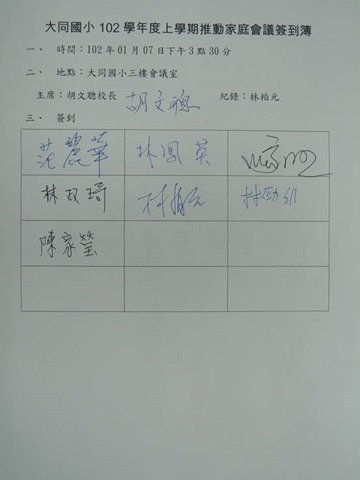 大同國小102學年度上學期推動家庭會議簽到簿
一、 時間：102年01月07日下午3點30分
二、 地點：大同國小三樓會議室
主席：胡文聰校長 胡文聰 紀錄：林柏元
三、 簽到
范麗華 林鳳英
林玟琦 林柏元
陳家瑩